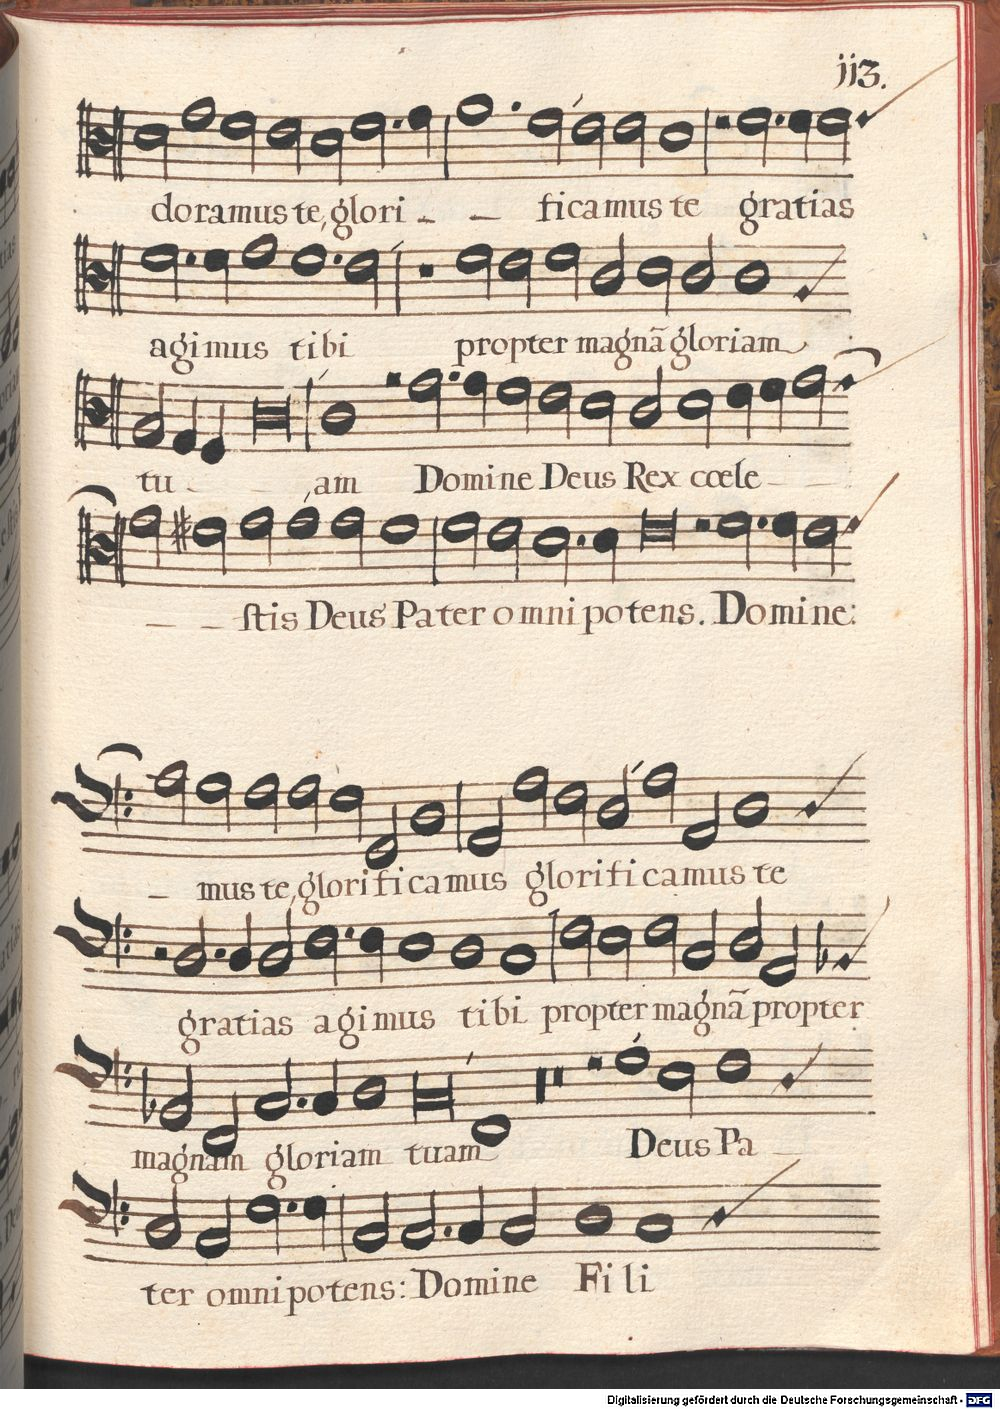 113.
doramus te, glori _ _ ficamus te gratias
agimus tibi propter magnã gloriam
tu _ _ am Domine Deus Rex cœle _ _
_ _ stis Deus Pater omnipotens. Domine:
_ mus te, glorificamus glorificamus te
gratias agimus tibi propter magnã propter
magnam gloriam tuam Deus Pa _
ter omnipotens: Domine Fili
Digitalisierung gefördert durch die Deutsche Forschungsgemeinschaft - DFG